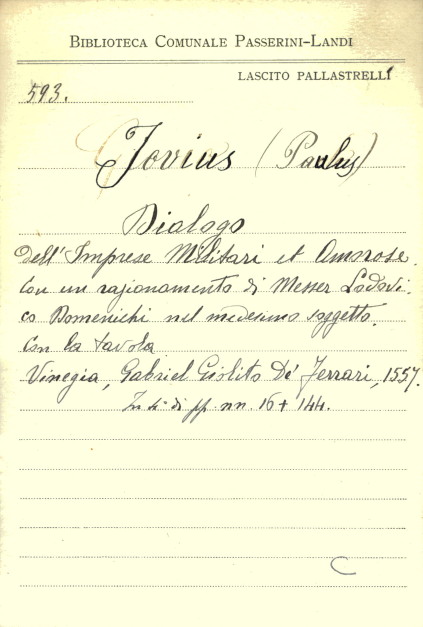 BIBLIOTECA COMUNALE PASSERINI-LANDI
LASCITO PALLASTRELLI
593.
Jovius (Paulus)
Dialogo
dell'Imprese Militari et Amorose.
Con un ragionamento di Messer Lodovi-
co Domenichi nel medesimo soggetto.
Con la tavola
Vinegia, Gabriel Giolito De' Ferrari, 1557.
In di pp. nn. 16 + 144.
C